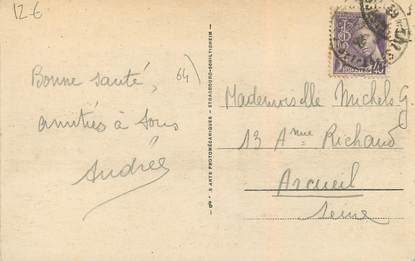 12-6
64)
Bonne santé,
amitiés à tous
Andrée
Mademoiselle Michels G
13 Anue Richaud
Arcueil
Seine
ARTS PHOTOMÉCANIQUES - STRASBOURG-SCHILTIGHEIM